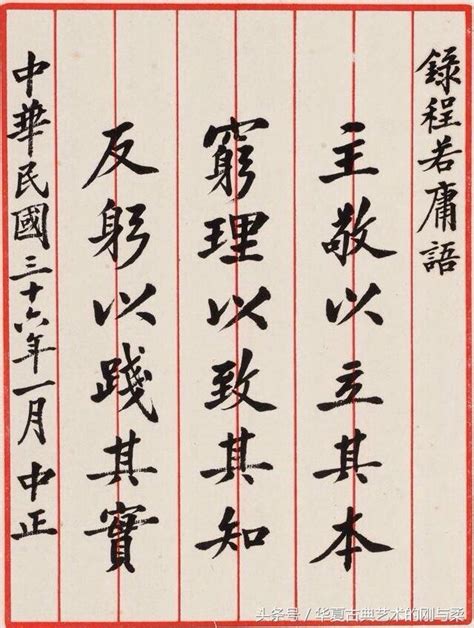 錄程若庸語
主敬以立其本
窮理以致其知
反躬以踐其實
中華民國三十六年一月 中正
头条号/华夏古典艺术的刚与柔